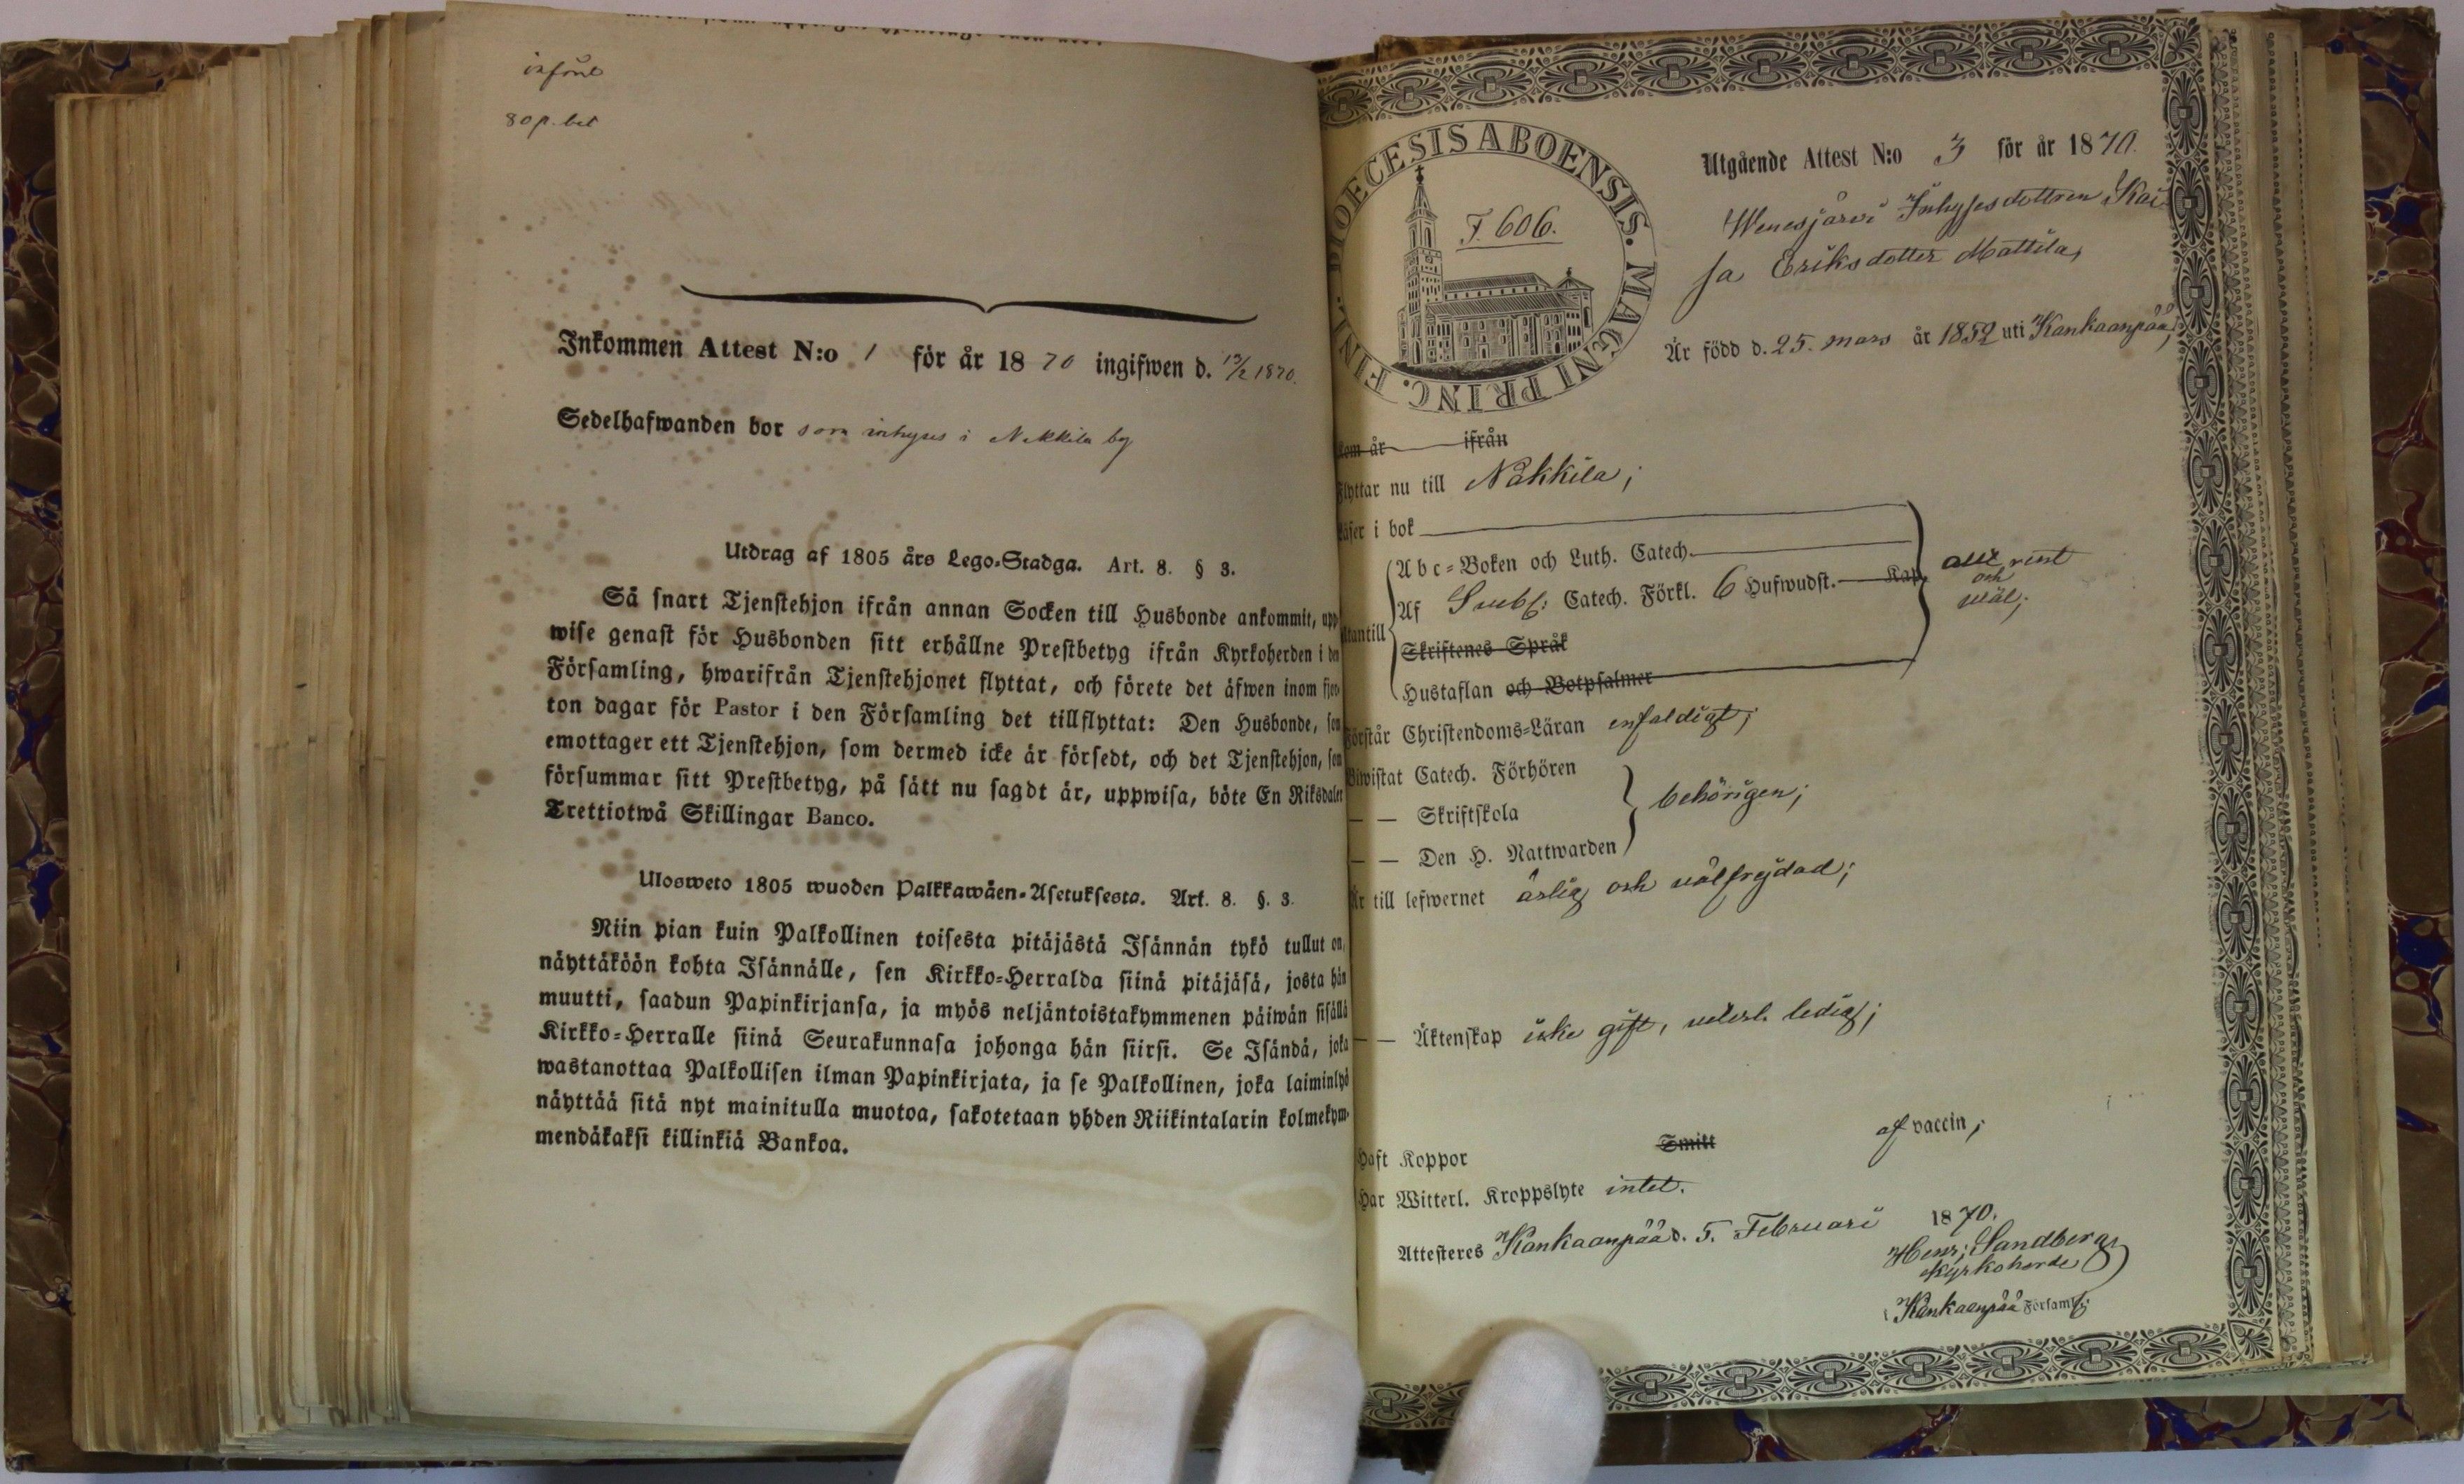 införd
80 p. bet
Inkommen Attest N:o 1 för år 1870 ingifwen d. 12/2 1870.
Sedelhafwanden bor som inhyses i Nakkila by
Utdrag af 1805 års Lego-Stadga. Art. 8. § 3.
Så snart Tjenstehjon ifrån annan Socken till Husbonde ankommit, upp
wise genast för Husbonden sitt erhållne Prestbetyg ifrån Kyrkoherden i den
Församling, hwarifrån Tjenstehjonet flyttat, och förete det äfwen inom fjor
ton dagar för Pastor i den Församling det tillflyttat: Den Husbonde, som
emottager ett Tjenstehjon, som dermed icke är försedt, och det Tjenstehjon, som
försummar sitt Prestbetyg, på sätt nu sagdt är, uppwisa, böte En Riksdaler
Trettiotwå Skillingar Banco.
Ulosweto 1805 wuoden Palkkawäen-Asetuksesta. Art. 8. §. 3.
Niin pian kuin Palkollinen toisesta pitäjästä Isännän tykö tullut on,
näyttäköön kohta Isännälle, sen Kirkko-Herralda siinä pitäjäsä, josta hän
muutti, saadun Papinkirjansa, ja myös neljäntoistakymmenen päiwän sisällä
Kirkko-Herralle siinä Seurakunnasa johonga hän siirsi. Se Isändä, joka
wastanottaa Palkollisen ilman Papinkirjata, ja se Palkollinen, joka laiminlyö
näyttää sitä nyt mainitulla muotoa, sakotetaan yhden Riikintalarin kolmekym-
mendäkaksi killinkiä Bankoa.
DIOECESIS ABOENSIS. MAGNI PRINC. FINL.
F. 606.
Utgående Attest N:o 3 för år 1870.
Wenesjärvi Inhysesdottren Kai
sa Eriksdotter Mattila,
Är född d. 25. mars år 1852 uti Kankaanpää;
kom år ifrån
Flyttar nu till Nakkila;
Läser i bok
Abc-Boken och Luth. Catech.
Af Sveb: Catech. Förkl. 6 Hufwudst. Kap.
utantill
Skriftenes Språk
Hustaflan och Botpsalmer
allt rent
och
wäl;
Förstår Christendoms-Läran enfaldigt;
Biwistat Catech. Förhören
— — Skriftskola
— — Den H. Nattwarden
behörigen;
Är till lefwernet ärlig och välfrejdad;
— — Äktenskap icke gift, veterl. ledig;
Haft Koppor Smitt af vaccin;
Har Witterl. Kroppslyte intet.
Attesteres Kankaanpää d. 5. Februari 1870.
Henr: Sandberg
Kyrkoherde
i Kankaanpää Församl: